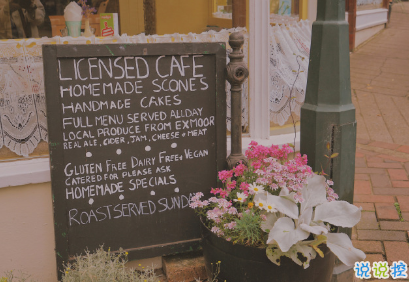 LICENSED CAFE
HOMEMADE SCONES
HANDMADE CAKES
FULL MENU SERVED ALLDAY
LOCAL PRODUCE FROM EXMOOR
REAL ALE, CIDER, JAM, CHEESE & MEAT
GLUTEN FREE DAIRY FREE & VEGAN
CATERED FOR PLEASE ASK
HOMEMADE SPECIALS
ROAST SERVED SUNDAY
说说控